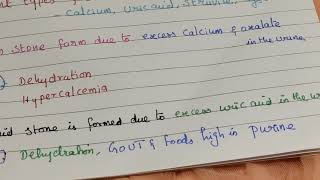 types
- Calcium, Uric acid, Struvine,
stone form due to excess Calcium & oxalate
in the urine.
Dehydration
Hypercalcemia
stone is formed due to excess uric acid in the u
Dehydration, GOUT & foods high in purine